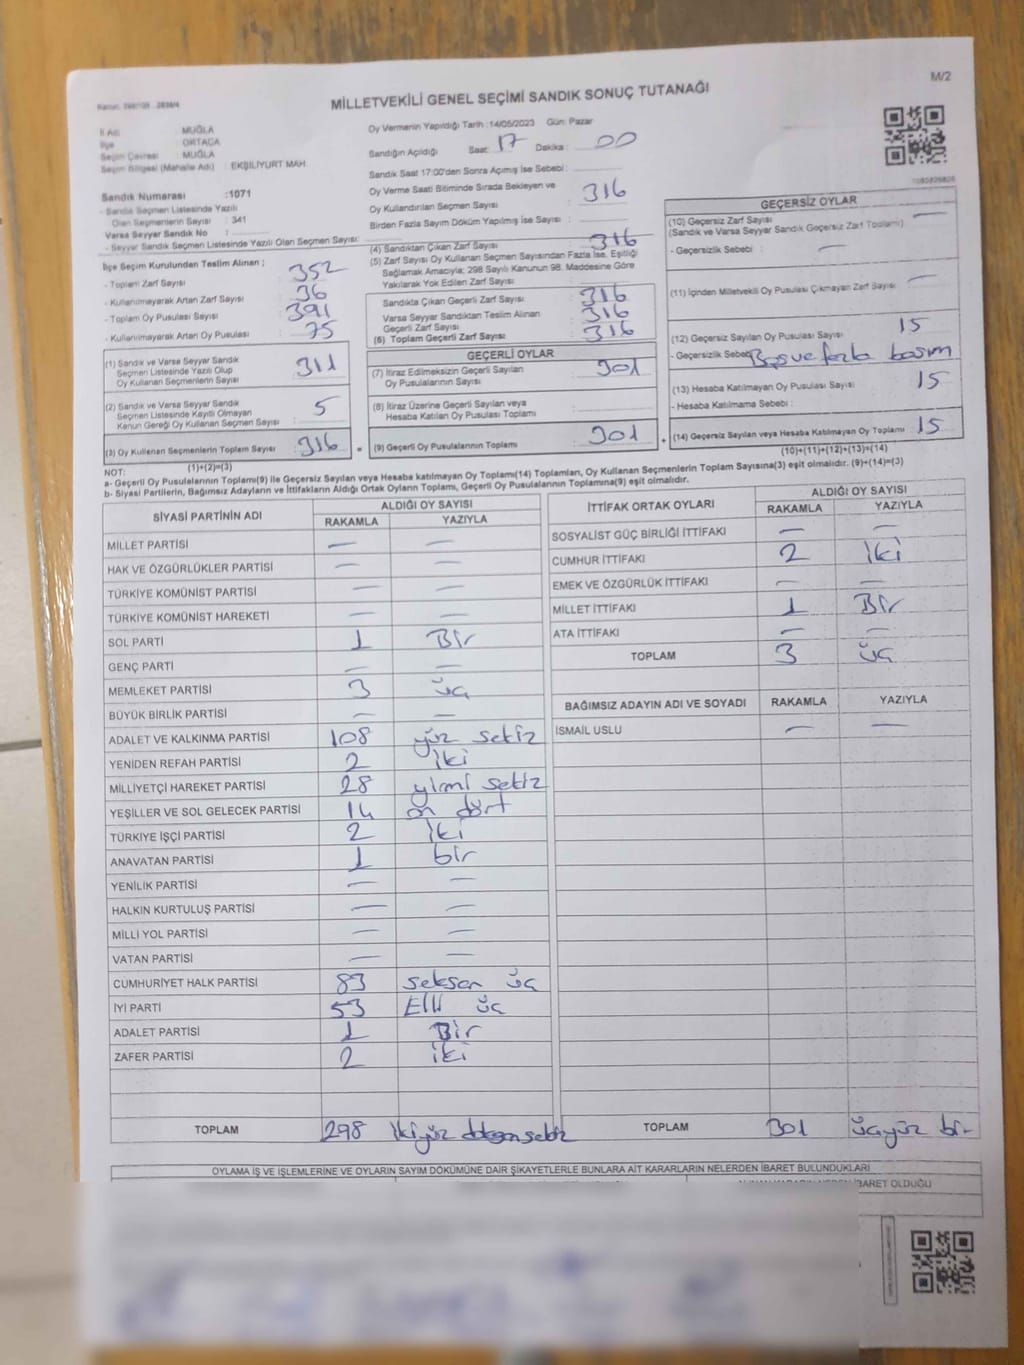 M/2
MİLLETVEKİLİ GENEL SEÇİMİ SANDIK SONUÇ TUTANAĞI
İl Adı : MUĞLA
İlçe : ORTACA
Seçim Çevresi : MUĞLA
Seçim Bölgesi (Mahalle Adı) : EKŞİLİYURT MAH.
Sandık Numarası :1071
- Sandık Seçmen Listesinde Yazılı
Olan Seçmenlerin Sayısı : 341
Varsa Seyyar Sandık No :
- Seyyar Sandık Seçmen Listesinde Yazılı Olan Seçmen Sayısı:
Oy Vermenin Yapıldığı Tarih :14/05/2023 Gün: Pazar
Sandığın Açıldığı Saat: 17 Dakika : 00
Sandık Saat 17:00'den Sonra Açımış İse Sebebi :
Oy Verme Saati Bitiminde Sırada Bekleyen ve
Oy Kullandırılan Seçmen Sayısı : 316
Birden Fazla Sayım Döküm Yapılmış İse Sayısı :
İlçe Seçim Kurulundan Teslim Alınan ;
- Toplam Zarf Sayısı : 352
- Kullanılmayarak Artan Zarf Sayısı : 36
- Toplam Oy Pusulası Sayısı : 391
- Kullanılmayarak Artan Oy Pusulası : 75
(1) Sandık ve Varsa Seyyar Sandık
Seçmen Listesinde Yazılı Olup
Oy Kullanan Seçmenlerin Sayısı : 311
(2) Sandık ve Varsa Seyyar Sandık
Seçmen Listesinde Kayıtlı Olmayan
Kanun Gereği Oy Kullanan Seçmen Sayısı : 5
(3) Oy Kullanan Seçmenlerin Toplam Sayısı : 316
(1)+(2)=(3)
(4) Sandıktan Çıkan Zarf Sayısı : 316
(5) Zarf Sayısı Oy Kullanan Seçmen Sayısından Fazla İse, Eşitliği
Sağlamak Amacıyla; 298 Sayılı Kanunun 98. Maddesine Göre
Yakılarak Yok Edilen Zarf Sayısı :
Sandıkta Çıkan Geçerli Zarf Sayısı : 316
Varsa Seyyar Sandıktan Teslim Alınan
Geçerli Zarf Sayısı : 316
(6) Toplam Geçerli Zarf Sayısı : 316
GEÇERLİ OYLAR
(7) İtiraz Edilmeksizin Geçerli Sayılan
Oy Pusulalarının Sayısı : 301
(8) İtiraz Üzerine Geçerli Sayılan veya
Hesaba Katılan Oy Pusulası Toplamı :
= (9) Geçerli Oy Pusulalarının Toplamı : 301 +
GEÇERSİZ OYLAR
(10) Geçersiz Zarf Sayısı : —
(Sandık ve Varsa Seyyar Sandık Geçersiz Zarf Toplamı)
- Geçersizlik Sebebi : —
(11) İçinden Milletvekili Oy Pusulası Çıkmayan Zarf Sayısı : —
(12) Geçersiz Sayılan Oy Pusulası Sayısı : 15
- Geçersizlik Sebebi : Boş ve fazla basım
(13) Hesaba Katılmayan Oy Pusulası Sayısı : 15
- Hesaba Katılmama Sebebi :
(14) Geçersiz Sayılan veya Hesaba Katılmayan Oy Toplamı : 15
(10)+(11)+(12)+(13)=(14)
NOT:
a- Geçerli Oy Pusulalarının Toplamı(9) ile Geçersiz Sayılan veya Hesaba katılmayan Oy Toplamı(14) Toplamları, Oy Kullanan Seçmenlerin Toplam Sayısına(3) eşit olmalıdır. (9)+(14)=(3)
b- Siyasi Partilerin, Bağımsız Adayların ve İttifakların Aldığı Ortak Oyların Toplamı, Geçerli Oy Pusulalarının Toplamına(9) eşit olmalıdır.
SİYASİ PARTİNİN ADI ALDIĞI OY SAYISI
RAKAMLA YAZIYLA
MİLLET PARTİSİ — —
HAK VE ÖZGÜRLÜKLER PARTİSİ — —
TÜRKİYE KOMÜNİST PARTİSİ — —
TÜRKİYE KOMÜNİST HAREKETİ — —
SOL PARTİ 1 Bir
GENÇ PARTİ — —
MEMLEKET PARTİSİ 3 üç
BÜYÜK BİRLİK PARTİSİ — —
ADALET VE KALKINMA PARTİSİ 108 yüz sekiz
YENİDEN REFAH PARTİSİ 2 iki
MİLLİYETÇİ HAREKET PARTİSİ 28 yirmi sekiz
YEŞİLLER VE SOL GELECEK PARTİSİ 14 on dört
TÜRKİYE İŞÇİ PARTİSİ 2 iki
ANAVATAN PARTİSİ 1 bir
YENİLİK PARTİSİ — —
HALKIN KURTULUŞ PARTİSİ — —
MİLLİ YOL PARTİSİ — —
VATAN PARTİSİ — —
CUMHURİYET HALK PARTİSİ 83 seksen üç
İYİ PARTİ 53 Elli üç
ADALET PARTİSİ 1 Bir
ZAFER PARTİSİ 2 iki
TOPLAM 298 ikiyüz doksansekiz
İTTİFAK ORTAK OYLARI ALDIĞI OY SAYISI
RAKAMLA YAZIYLA
SOSYALİST GÜÇ BİRLİĞİ İTTİFAKI — —
CUMHUR İTTİFAKI 2 iki
EMEK VE ÖZGÜRLÜK İTTİFAKI — —
MİLLET İTTİFAKI 1 Bir
ATA İTTİFAKI — —
TOPLAM 3 üç
BAĞIMSIZ ADAYIN ADI VE SOYADI RAKAMLA YAZIYLA
İSMAİL USLU — —
TOPLAM 301 üçyüz bir
OYLAMA İŞ VE İŞLEMLERİNE VE OYLARIN SAYIM DÖKÜMÜNE DAİR ŞİKAYETLERLE BUNLARA AİT KARARLARIN NELERDEN İBARET BULUNDUKLARI
İBARET OLDUĞU